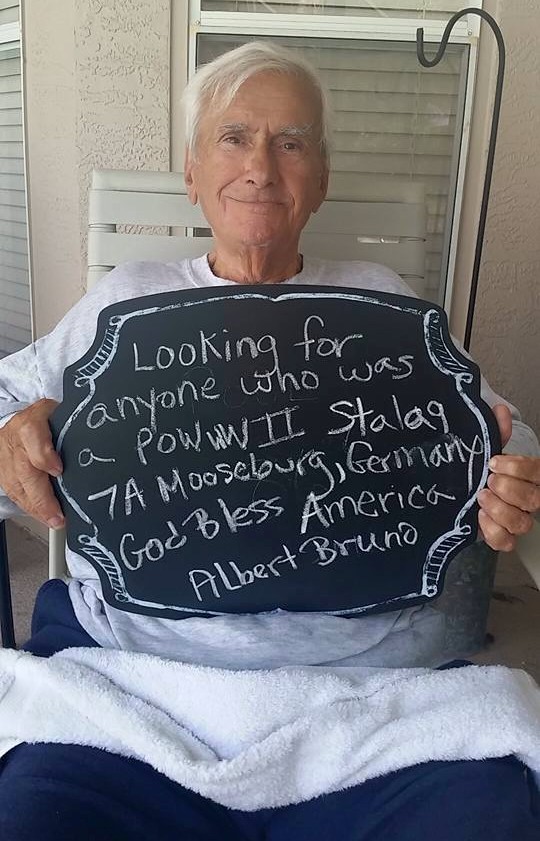 Looking for
anyone who was
a POW WW II Stalag
7A Mooseburg, Germany
God Bless America
Albert Bruno